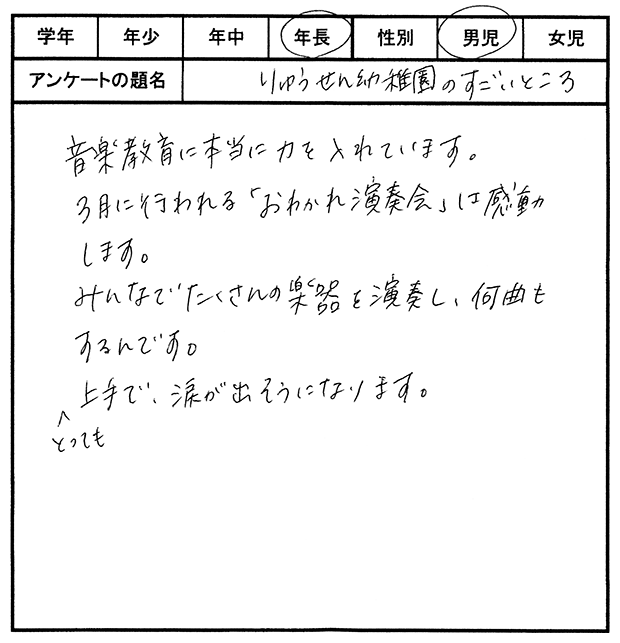 学年 年少 年中 年長 性別 男児 女児
アンケートの題名 りゅうせん幼稚園のすごいところ
音楽教育に本当に力を入れています。
3月に行われる「おわかれ演奏会」は感動
します。
みんなでたくさんの楽器を演奏し、何曲も
するんです。
上手で、涙が出そうになります。
とっても